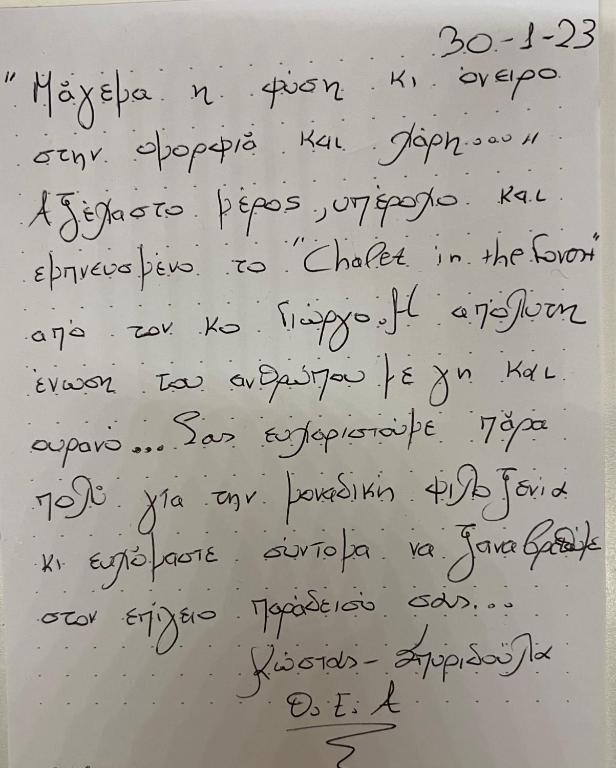 30-1-23
"Μάγεμα η φύση κι όνειρο
στην ομορφιά και χάρη σου"
Αξέχαστο μέρος, υπέροχο και
εμπνευσμένο το "Chalet in the forest"
από τον κο Γιώργο. Η απόλυτη
ένωση του ανθρώπου με γη και
ουρανό... Σας ευχαριστούμε πάρα
πολύ για την μοναδική φιλοξενία
κι ευχόμαστε σύντομα να ξαναβρεθούμε
στον επίγειο παράδεισό σας...
Κώστας - Σπυριδούλα
Θ. Ε. Α